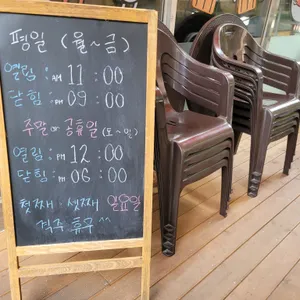 평일 (월~금)
열림: AM 11:00
닫힘: PM 09:00
주말 or 공휴일 (토~일)
열림: PM 12:00
닫힘: PM 06:00
첫째. 셋째 일요일
격주 휴무^^